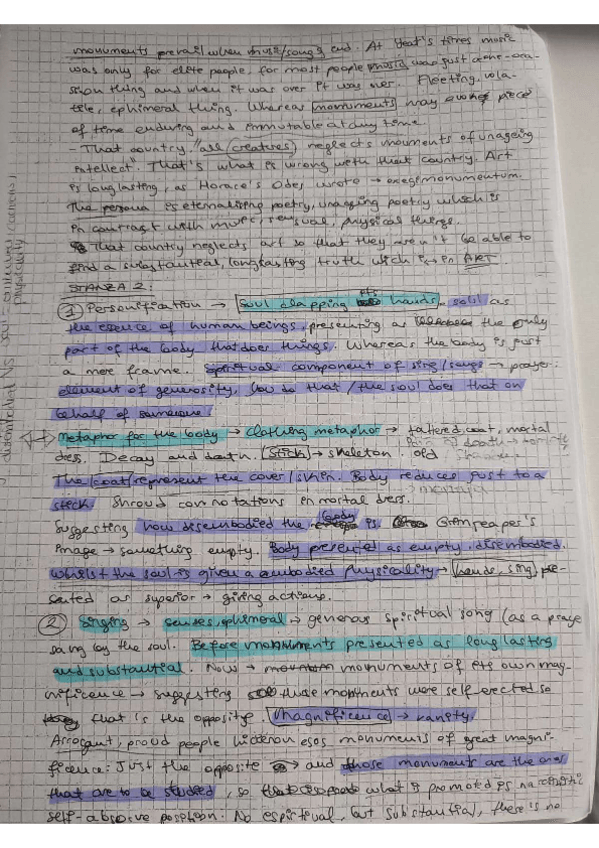 monuments prevail when music/songs end. At Yeat's times music
was only for elite people, for most people music was just a one-oca-
sion thing and when it was over it was over. Fleeting, vola-
tile, ephimeral thing. Whereas monuments may piece
of time enduring and immutable at any time.
- That country "all (creatures) neglects mouments of unageing
intellect". That's what is wrong with that country. Art
is longlasting, as Horace's Odes wrote → exegi monumentum.
The persona is eternalising poetry, unaging poetry which is
in contrast with music, sensual, physical things.
That country neglects art so that they aren't be able to
find a substantial, longlasting truth wich is in ART.
STANZA 2:
① Personification → soul clapping its hands. soul as
the essence of human beings, presenting as the only
part of the body that does things. Whereas the body is just
a mere frame. Spiritual component of sing/songs → prayer:
element of generosity, you do that / the soul does that on
behalf of someone/
disembodied VS soul = embodied/corporeal
physicality
metaphor for the body → clothing metaphor → tattered coat, mortal
dres. Decay and death. Stick → skeleton. old
The coat represent the cover/skin. Body reduces just to a
stick. Shroud connotations in mortal dress.
Suggesting how disembodied the body is Grim reaper's
image → something empty. Body presented as empty, disembodied.
whilst the soul is given a embodied physicality → hands, sing, pre-
sented as superior → giving actions.
② Singing → senses, ephimeral → generous spiritual song (as a praye
sang by the soul. Before monuments presented as long lasting
and substantial. Now → monuments of its own mag-
nificence → suggesting those monments were self-erected so
that is the opposite. Magnificence → vanity.
Arrogant, proud people hicieron esos monuments of great magni-
ficence: Just the opposite and those monuments are the ones
that are to be studied, so what is promoted is narcisistic
self-absorve position. No espiritual, but substantial, there is no